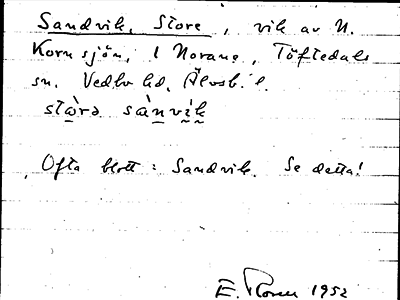 Sandvik, Store, vik av N.
Kornsjön, i Norane, Töftedals
sn. Vedbo hd, Älvsb. l.
stɷ̀rə sànvi̊k
Ofta blott: Sandvik. Se detta!
E. 1952